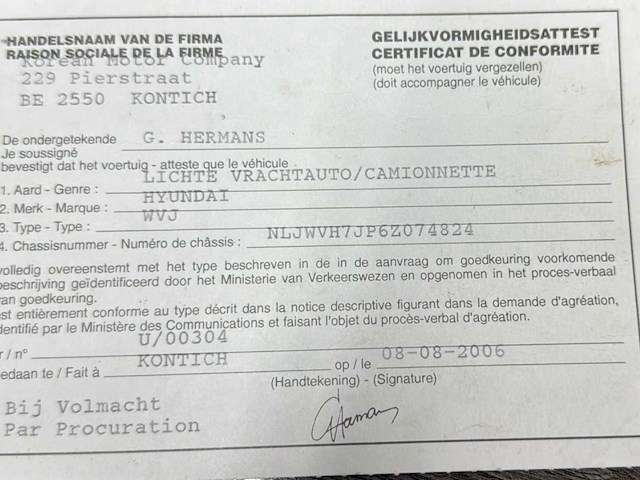 HANDELSNAAM VAN DE FIRMA
RAISON SOCIALE DE LA FIRME
Korean Motor Company
229 Pierstraat
BE 2550 KONTICH
GELIJKVORMIGHEIDSATTEST
CERTIFICAT DE CONFORMITE
(moet het voertuig vergezellen)
(doit accompagner le véhicule)
De ondergetekende G. HERMANS
Je soussigné
bevestigt dat het voertuig - atteste que le véhicule
1. Aard - Genre : LICHTE VRACHTAUTO/CAMIONNETTE
2. Merk - Marque : HYUNDAI
3. Type - Type : WVJ
4. Chassisnummer - Numéro de châssis : NLJWVH7JP6Z074824
volledig overeenstemt met het type beschreven in de in de aanvraag om goedkeuring voorkomende
beschrijving geïdentificeerd door het Ministerie van Verkeerswezen en opgenomen in het proces-verbaal
van goedkeuring.
est entièrement conforme au type décrit dans la notice descriptive figurant dans la demande d'agréation,
identifié par le Ministère des Communications et faisant l'objet du procès-verbal d'agréation.
r / n° U/00304
edaan te / Fait à KONTICH op / le 08-08-2006
(Handtekening) - (Signature)
Bij Volmacht
Par Procuration